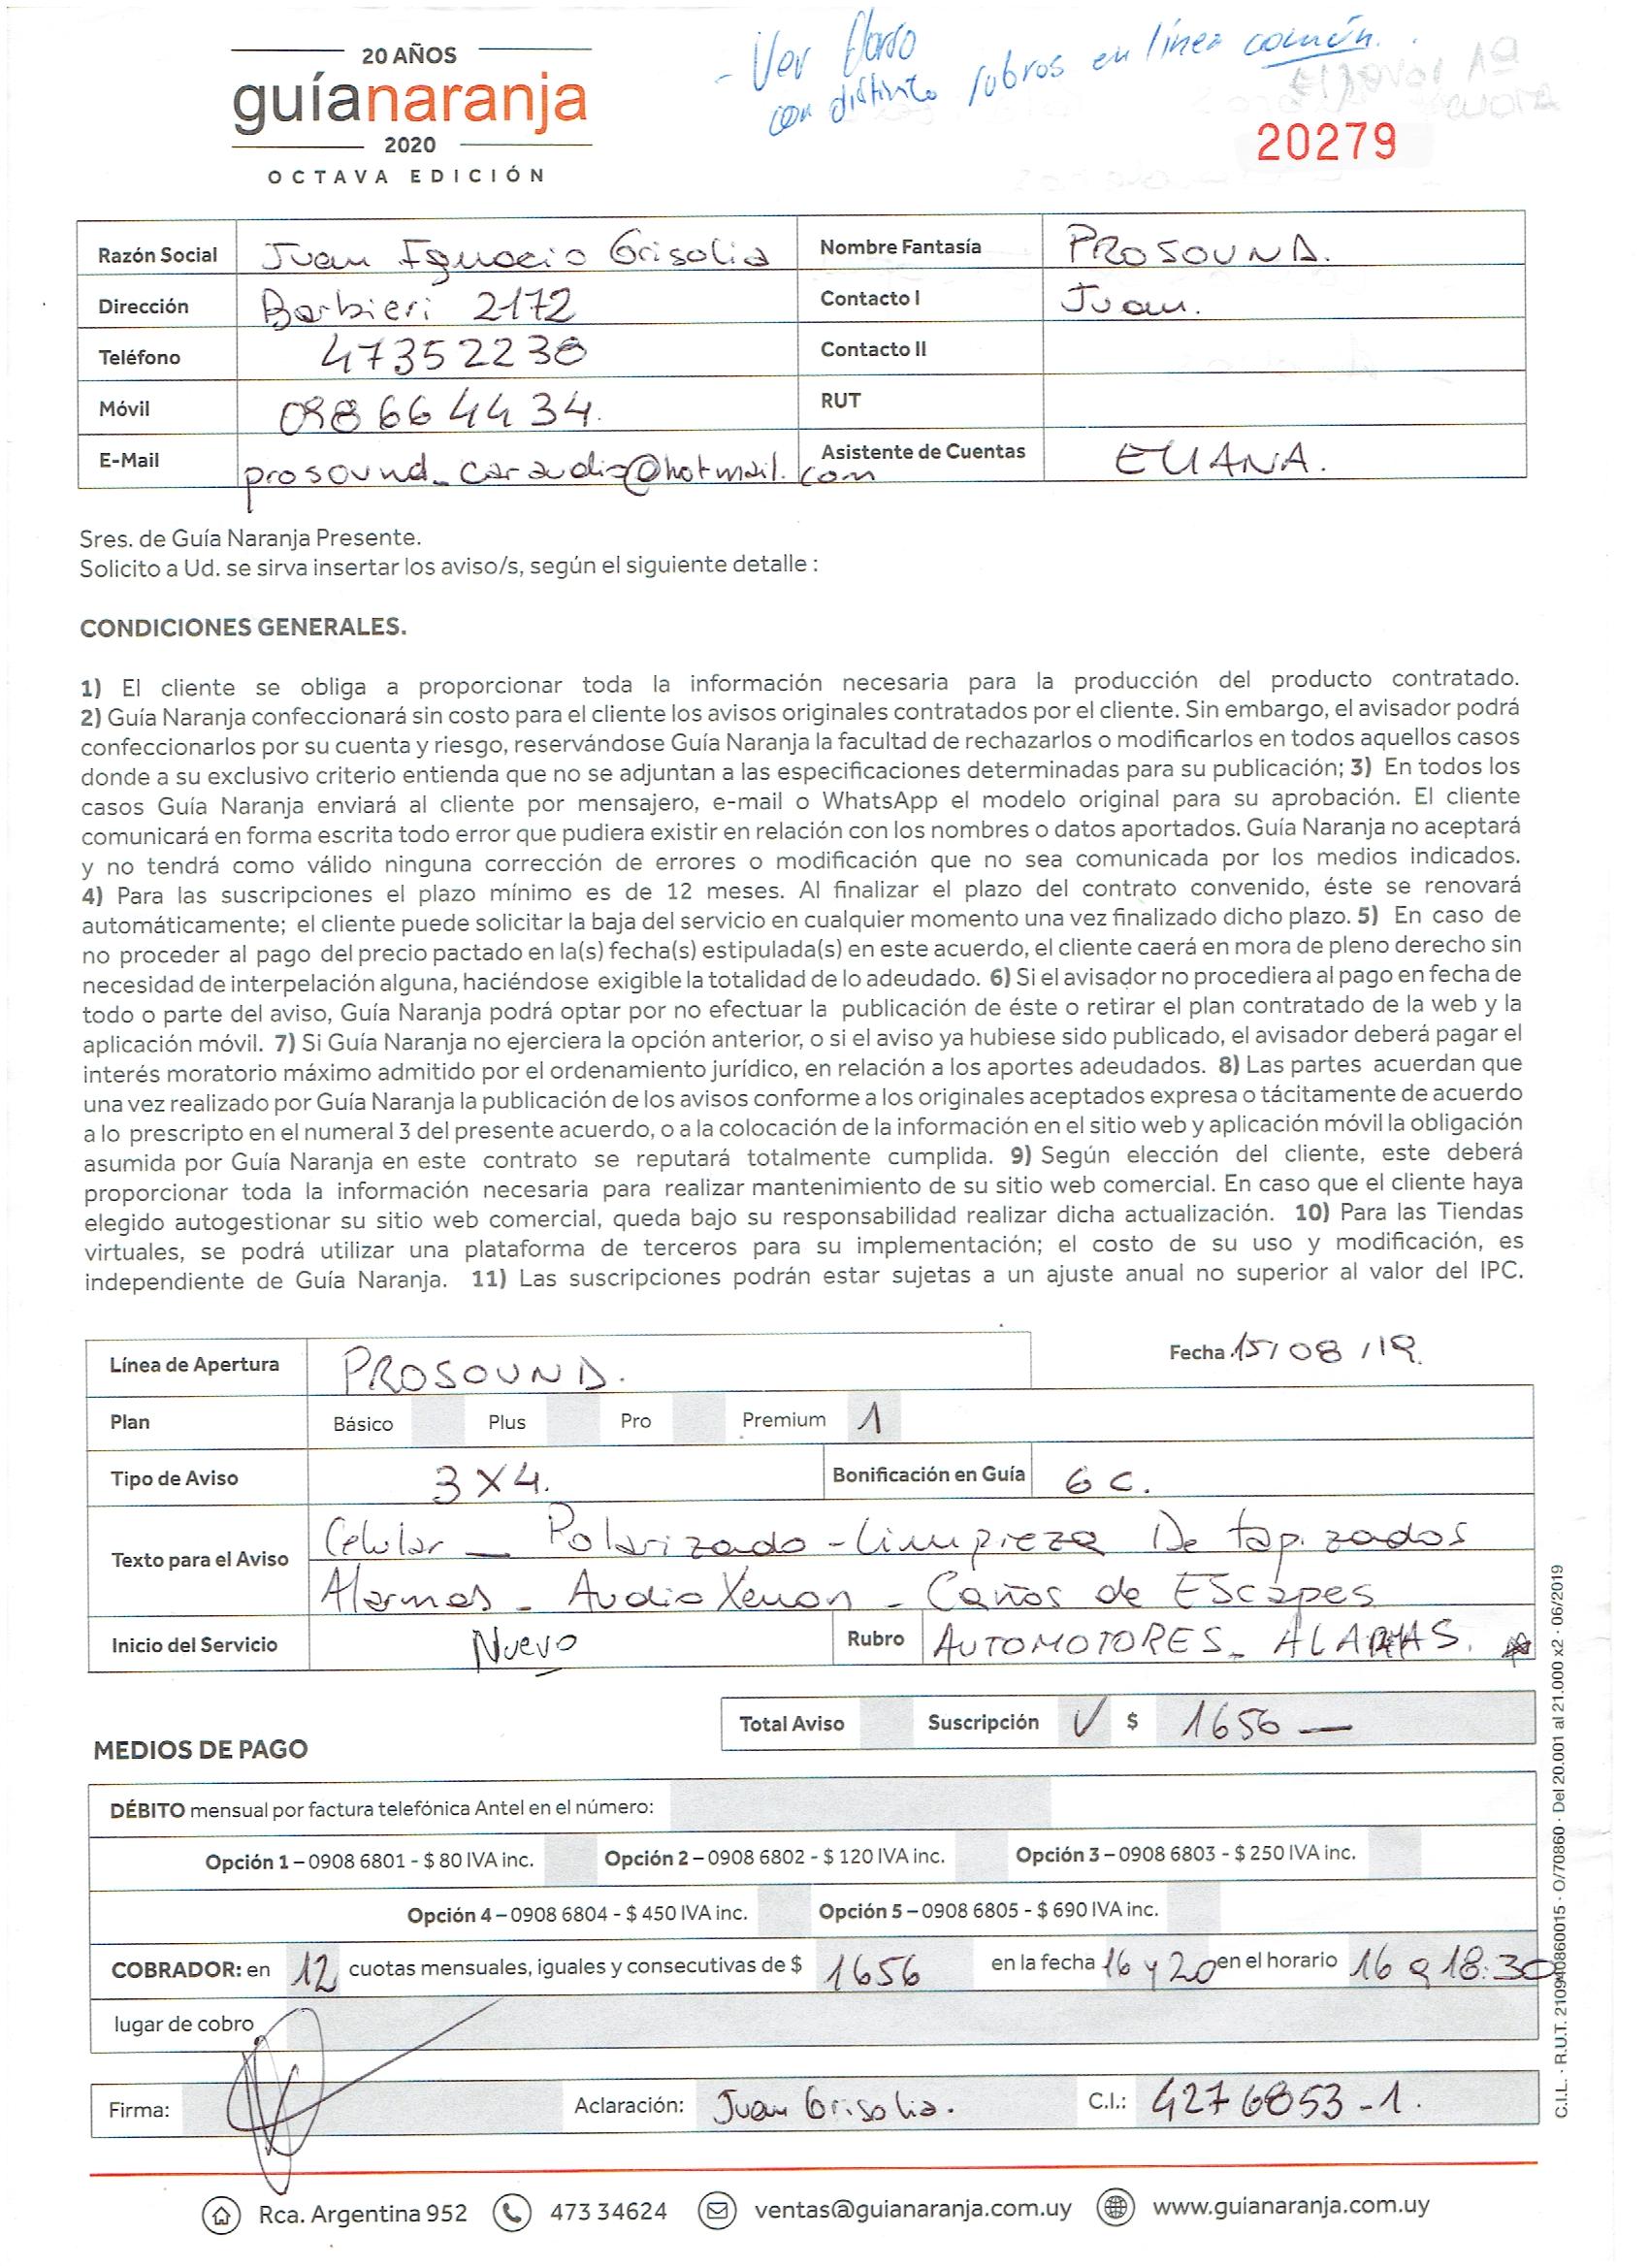 - Ver
con distinto rubros en línea común.
20 AÑOS
guíanaranja
2020
OCTAVA EDICIÓN
20279
Razón Social Juan Ignacio Grisolia Nombre Fantasía PROSOUND.
Dirección Barbieri 2172 Contacto I Juan.
Teléfono 47352238 Contacto II
Móvil 098664434. RUT
E-Mail prosound_caraudio@hotmail.com Asistente de Cuentas ELIANA.
Sres. de Guía Naranja Presente.
Solicito a Ud. se sirva insertar los aviso/s, según el siguiente detalle :
CONDICIONES GENERALES.
1) El cliente se obliga a proporcionar toda la información necesaria para la producción del producto contratado.
2) Guía Naranja confeccionará sin costo para el cliente los avisos originales contratados por el cliente. Sin embargo, el avisador podrá
confeccionarlos por su cuenta y riesgo, reservándose Guía Naranja la facultad de rechazarlos o modificarlos en todos aquellos casos
donde a su exclusivo criterio entienda que no se adjuntan a las especificaciones determinadas para su publicación; 3) En todos los
casos Guía Naranja enviará al cliente por mensajero, e-mail o WhatsApp el modelo original para su aprobación. El cliente
comunicará en forma escrita todo error que pudiera existir en relación con los nombres o datos aportados. Guía Naranja no aceptará
y no tendrá como válido ninguna corrección de errores o modificación que no sea comunicada por los medios indicados.
4) Para las suscripciones el plazo mínimo es de 12 meses. Al finalizar el plazo del contrato convenido, éste se renovará
automáticamente; el cliente puede solicitar la baja del servicio en cualquier momento una vez finalizado dicho plazo. 5) En caso de
no proceder al pago del precio pactado en la(s) fecha(s) estipulada(s) en este acuerdo, el cliente caerá en mora de pleno derecho sin
necesidad de interpelación alguna, haciéndose exigible la totalidad de lo adeudado. 6) Si el avisador no procediera al pago en fecha de
todo o parte del aviso, Guía Naranja podrá optar por no efectuar la publicación de éste o retirar el plan contratado de la web y la
aplicación móvil. 7) Si Guía Naranja no ejerciera la opción anterior, o si el aviso ya hubiese sido publicado, el avisador deberá pagar el
interés moratorio máximo admitido por el ordenamiento jurídico, en relación a los aportes adeudados. 8) Las partes acuerdan que
una vez realizado por Guía Naranja la publicación de los avisos conforme a los originales aceptados expresa o tácitamente de acuerdo
a lo prescripto en el numeral 3 del presente acuerdo, o a la colocación de la información en el sitio web y aplicación móvil la obligación
asumida por Guía Naranja en este contrato se reputará totalmente cumplida. 9) Según elección del cliente, este deberá
proporcionar toda la información necesaria para realizar mantenimiento de su sitio web comercial. En caso que el cliente haya
elegido autogestionar su sitio web comercial, queda bajo su responsabilidad realizar dicha actualización. 10) Para las Tiendas
virtuales, se podrá utilizar una plataforma de terceros para su implementación; el costo de su uso y modificación, es
independiente de Guía Naranja. 11) Las suscripciones podrán estar sujetas a un ajuste anual no superior al valor del IPC.
Línea de Apertura PROSOUND. Fecha 15/08/19
Plan Básico Plus Pro Premium 1
Tipo de Aviso 3X4. Bonificación en Guía 6 c.
Texto para el Aviso Celular - Polarizado - Limpieza De tapizados
Alarmas - Audio Xenon - Caños de EScapes
Inicio del Servicio Nuevo Rubro AUTOMOTORES - ALARMAS.
Total Aviso Suscripción ✓ $ 1656 —
MEDIOS DE PAGO
DÉBITO mensual por factura telefónica Antel en el número:
Opción 1 – 0908 6801 - $ 80 IVA inc. Opción 2 – 0908 6802 - $ 120 IVA inc. Opción 3 – 0908 6803 - $ 250 IVA inc.
Opción 4 – 0908 6804 - $ 450 IVA inc. Opción 5 – 0908 6805 - $ 690 IVA inc.
COBRADOR: en 12 cuotas mensuales, iguales y consecutivas de $ 1656 en la fecha 16 y 20 en el horario 16 a 18:30
lugar de cobro
Firma: Aclaración: Juan Grisolia. C.I.: 4276853-1.
C.I.L. · R.U.T. 210940860015 · O/70860 · Del 20.001 al 21.000 x2 · 06/2019
Rca. Argentina 952 473 34624 ventas@guianaranja.com.uy www.guianaranja.com.uy